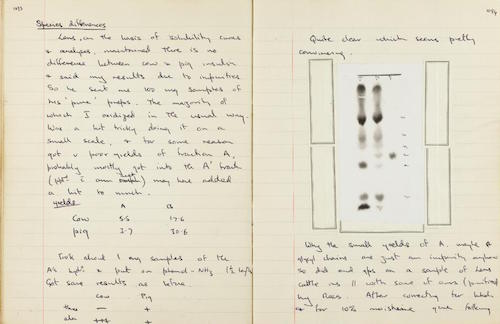 Species differences
Lens, on the basis of solubility curves
& analyses, maintained there is no
difference between cow & pig insulin
& said my results due to impurities
So he sent me 100 mg samples of
his 'pure' preps. The majority of
which I oxidized in the usual way.
Was a bit tricky doing it on a
small scale, & for some reason
got v poor yields of fraction A,
probably mostly got into the A' track
may have added
a bit to much.
yields A B
Cow 5.5 17.6
pig 3.7 30.6
Took about 1 mg samples of the
A's & put on phenol-NH3
Got same results as before.
Cow Pig
thre — +
ala +++ +
Quite clear which seems pretty
convincing.
Why the small yields of A. maybe
chains are just an impurity anyhow
so did end gps on a sample of Lens
cattle ins // with some of ours
by Rees. After correcting for
& for 10% moisture gave following